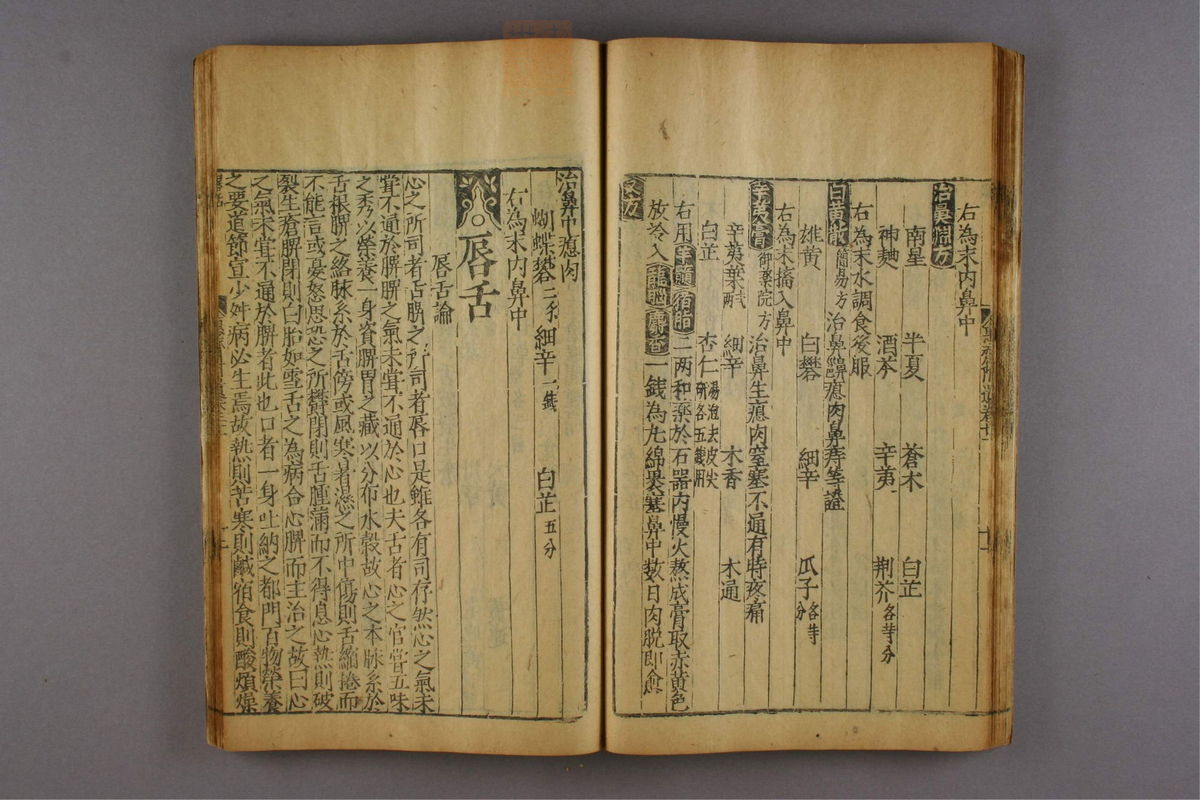 右為末内鼻中
治鼻淵方
南星 半夏 蒼术 白芷
神麯 酒芩 辛夷 荆芥各等分
右為末水調食後服
白黄散簡易方治鼻齆瘜肉鼻痔等證
雄黄 白礬 細辛 瓜子各等分
右為末搐入鼻中
辛夷膏御藥院方治鼻生瘜肉窒塞不通有時疼痛
辛夷葉二兩 細辛 木香 木通
白芷 杏仁湯泡去皮尖研各五錢用
右用羊髓猪脂二两和藥於石器内慢火熬成膏取赤黄色
放冷入龍腦麝香一錢為丸綿裹塞鼻中数日肉脱即愈
又方
治鼻中瘜肉
蝴蝶礬二 細辛一錢 白芷五分
右為末内鼻中
唇舌
唇舌論
心之所司者舌脾之所司者唇口是雖各有司存然心之氣未
甞不通於脾脾之氣未甞不通於心也夫舌者心之官嘗五味
之秀以榮養一身資脾胃之藏以分布水穀故心之本脉系於
舌根脾之絡脉系於舌傍或風寒暑濕之所中傷則舌縮捲而
不能言或憂怒思恐之所欝閉則舌腫滿而不得息心熱則破
裂生瘡脾閉則白胎如雪舌之為病合心脾而主治之故曰心
之氣未甞不通於脾者此也口者一身吐納之都門百物榮養
之要道節宣少舛病必生焉故熱則苦寒則鹹宿食則酸煩燥